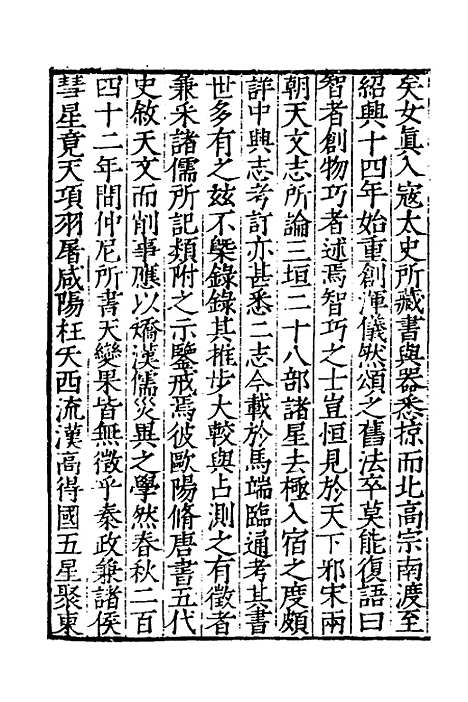 矣女眞入寇太史所藏書與器悉掠而北高宗南渡至
紹興十四年始重創渾儀然頌之舊法卒莫能復語曰
智者創物巧者述焉智巧之士豈恒見於天下邪宋兩
朝天文志所論三垣二十八部諸星去極入宿之度頗
詳中興志考訂亦甚悉二志今載於馬端臨通考其書
世多有之玆不槩錄錄其推步大較與占測之有徵者
兼采諸儒所記類附之示鑒戒焉彼歐陽脩唐書五代
史敘天文而削事應以矯漢儒災異之學然春秋二百
四十二年間仲尼所書天變果皆無徵乎秦政兼諸侯
彗星竟天項羽屠咸陽枉矢西流漢高得國五星聚東